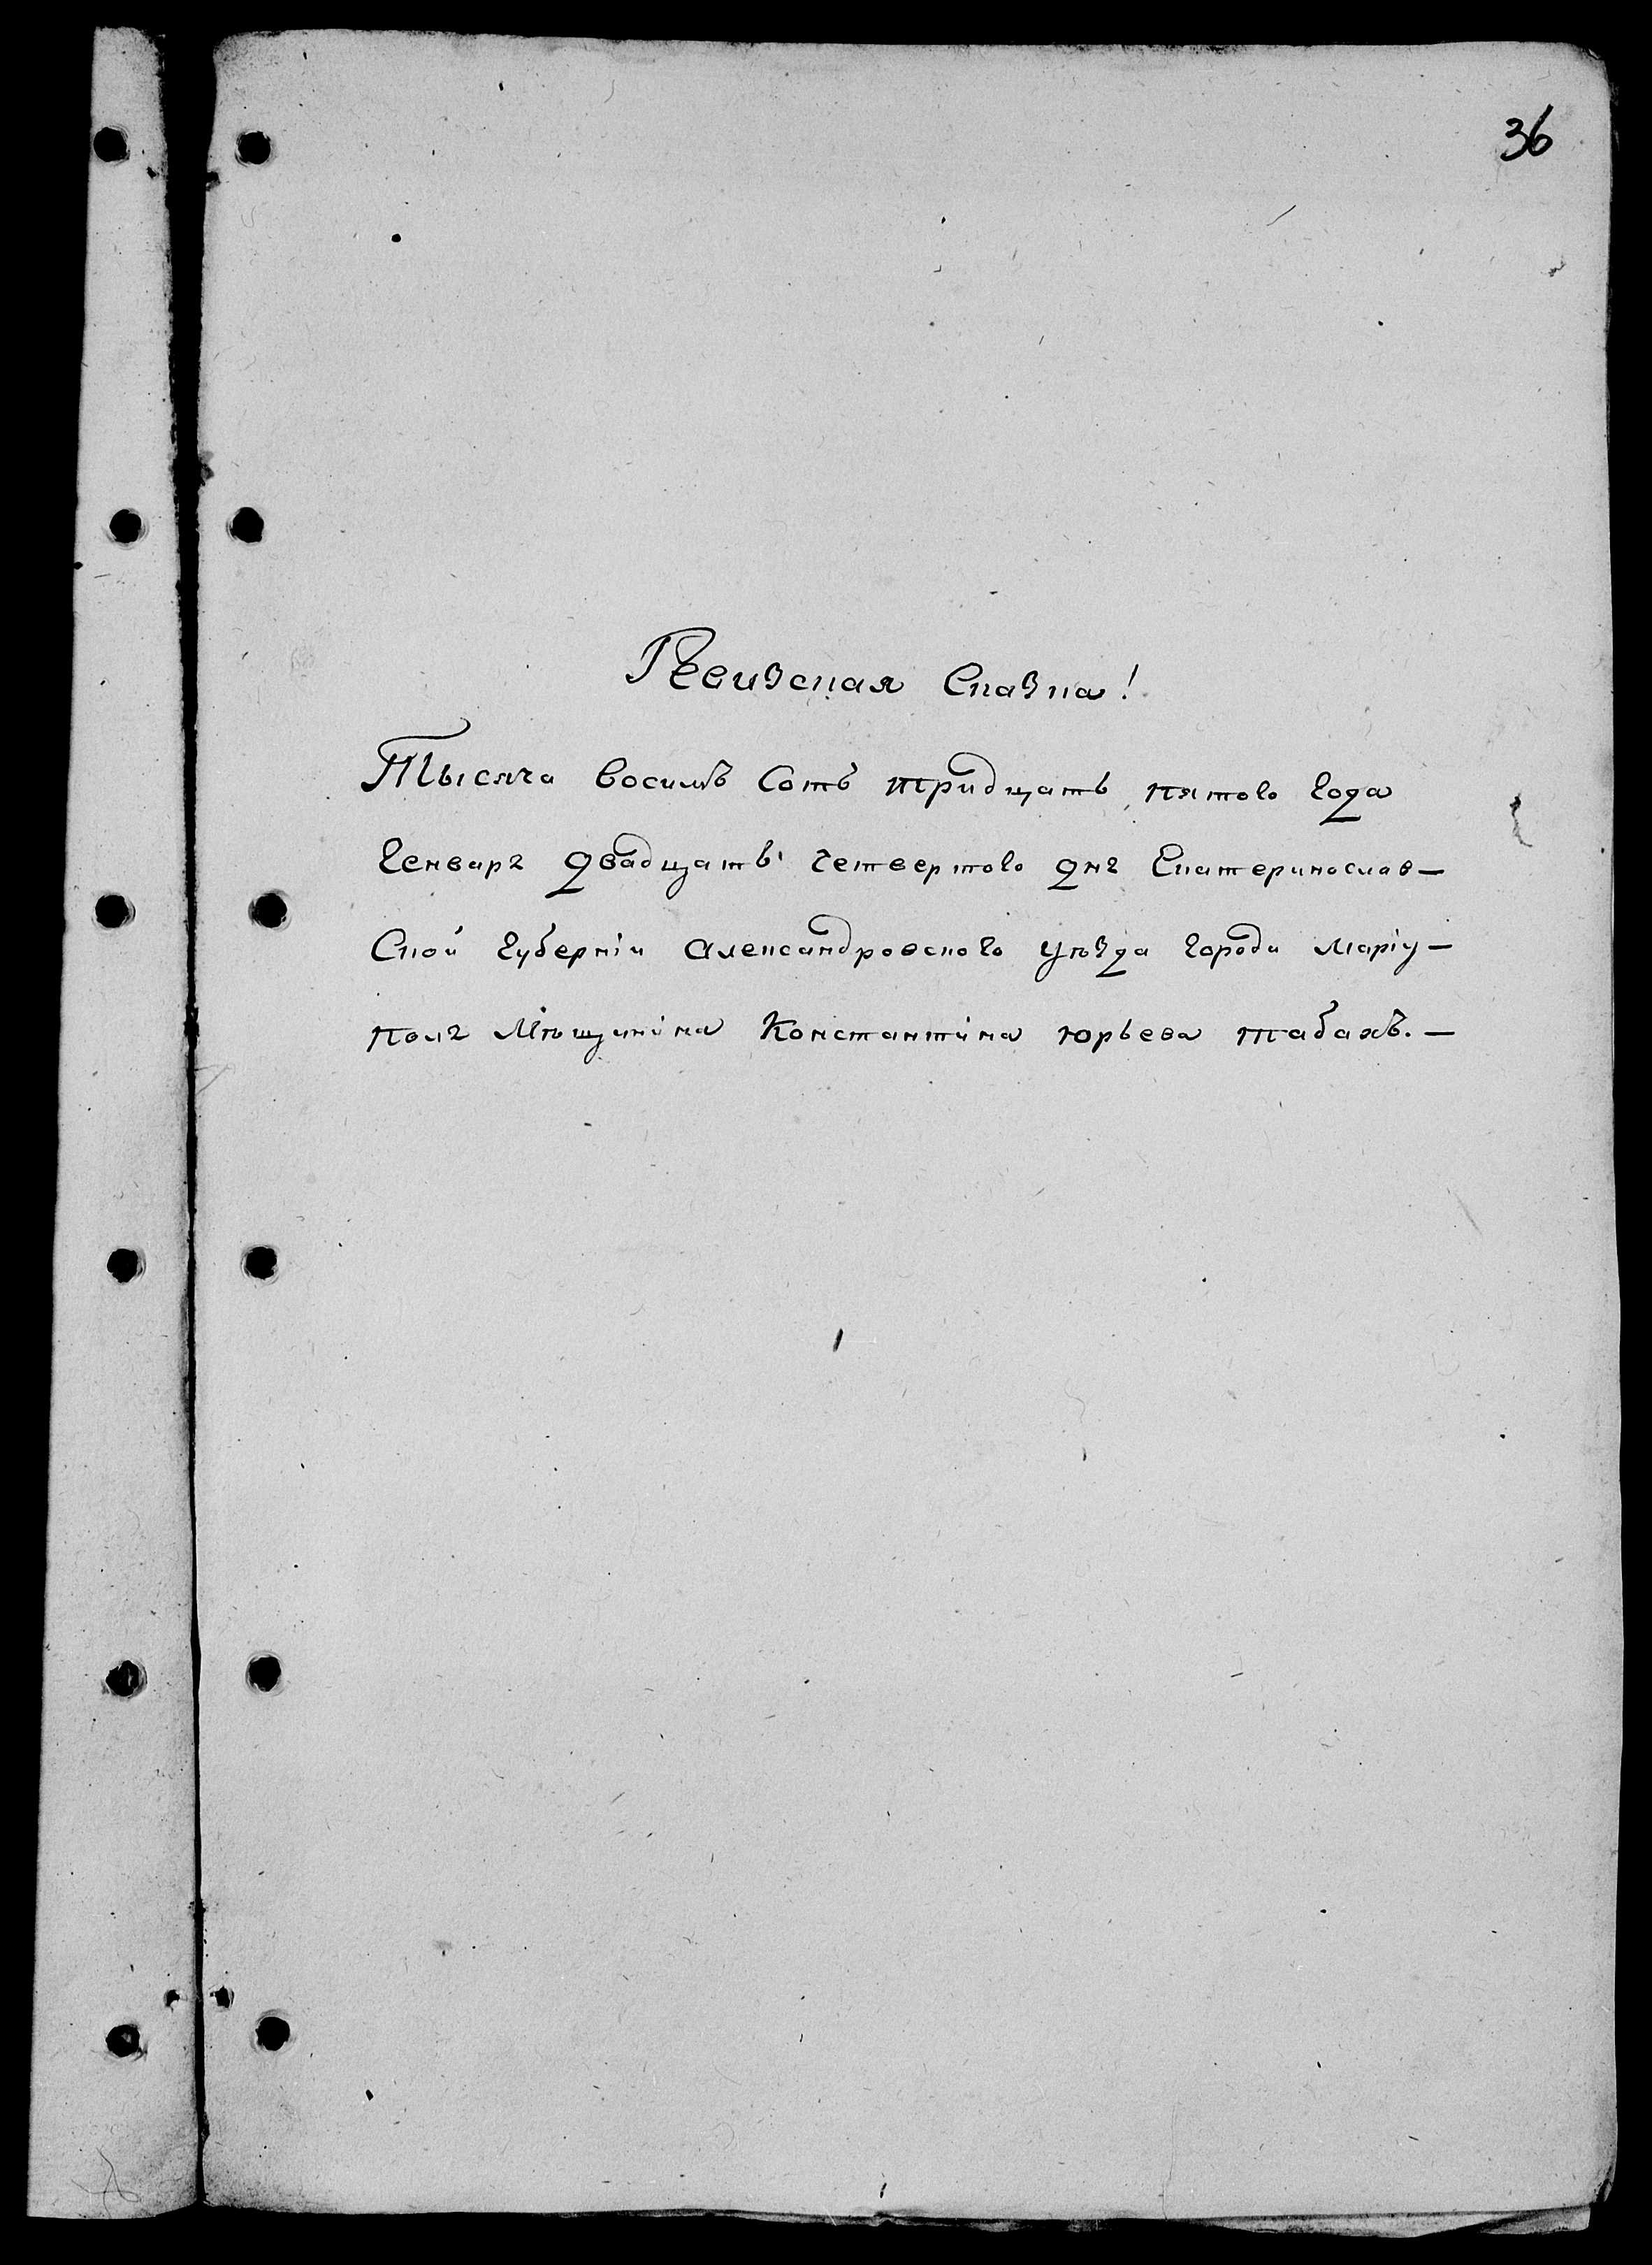 36
Ревизская Сказка!
Тысяча восимъ Сотъ тридцать пятого года
Генваря двадцать четвертого дня Екатеринослав-
Ской губерніи Александровского уѣзда города Маріу-
поля Мѣщинина Константина юрьева табахъ.-